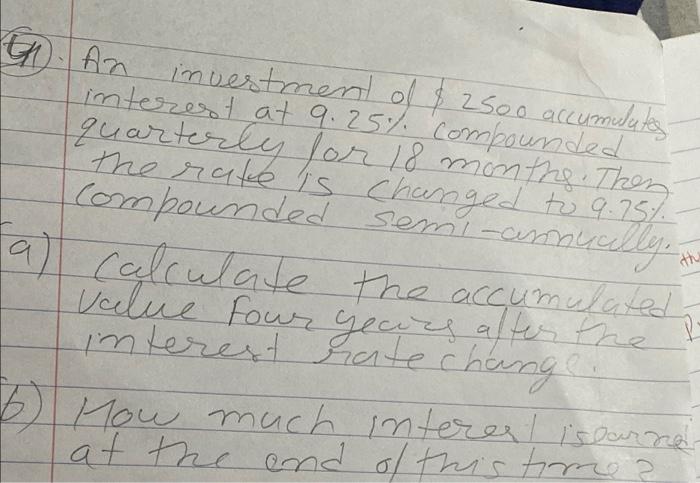 An investment of $ 2500 accumulates
interest at 9.25%. compounded
quarterly for 18 months. Then
the rate is changed to 9.75%.
compounded semi-annually.
a) Calculate the accumulated
value four years after the
interest rate change.
b) How much interest is earned
at the end of this time?